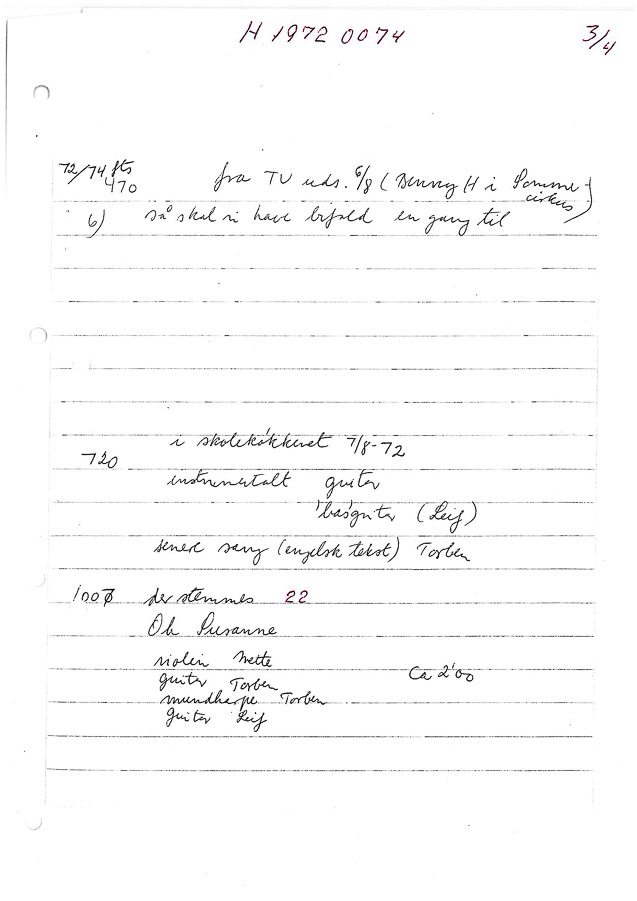 H 1972 0074 3/4
72/74 fts
470 fra TV uds. 6/8 (Benny H i Sommer-
cirkus)
6) så skal vi have bifald en gang til
i skolekøkkenet 7/8-72
720
instrumentalt guitar
'bas'guitar (Leif)
senere sang (engelsk tekst) Torben
1007 der stemmes 22
Oh Susanne
violin Mette
guitar Torben Ca 2'00
mundharpe Torben
guitar Leif